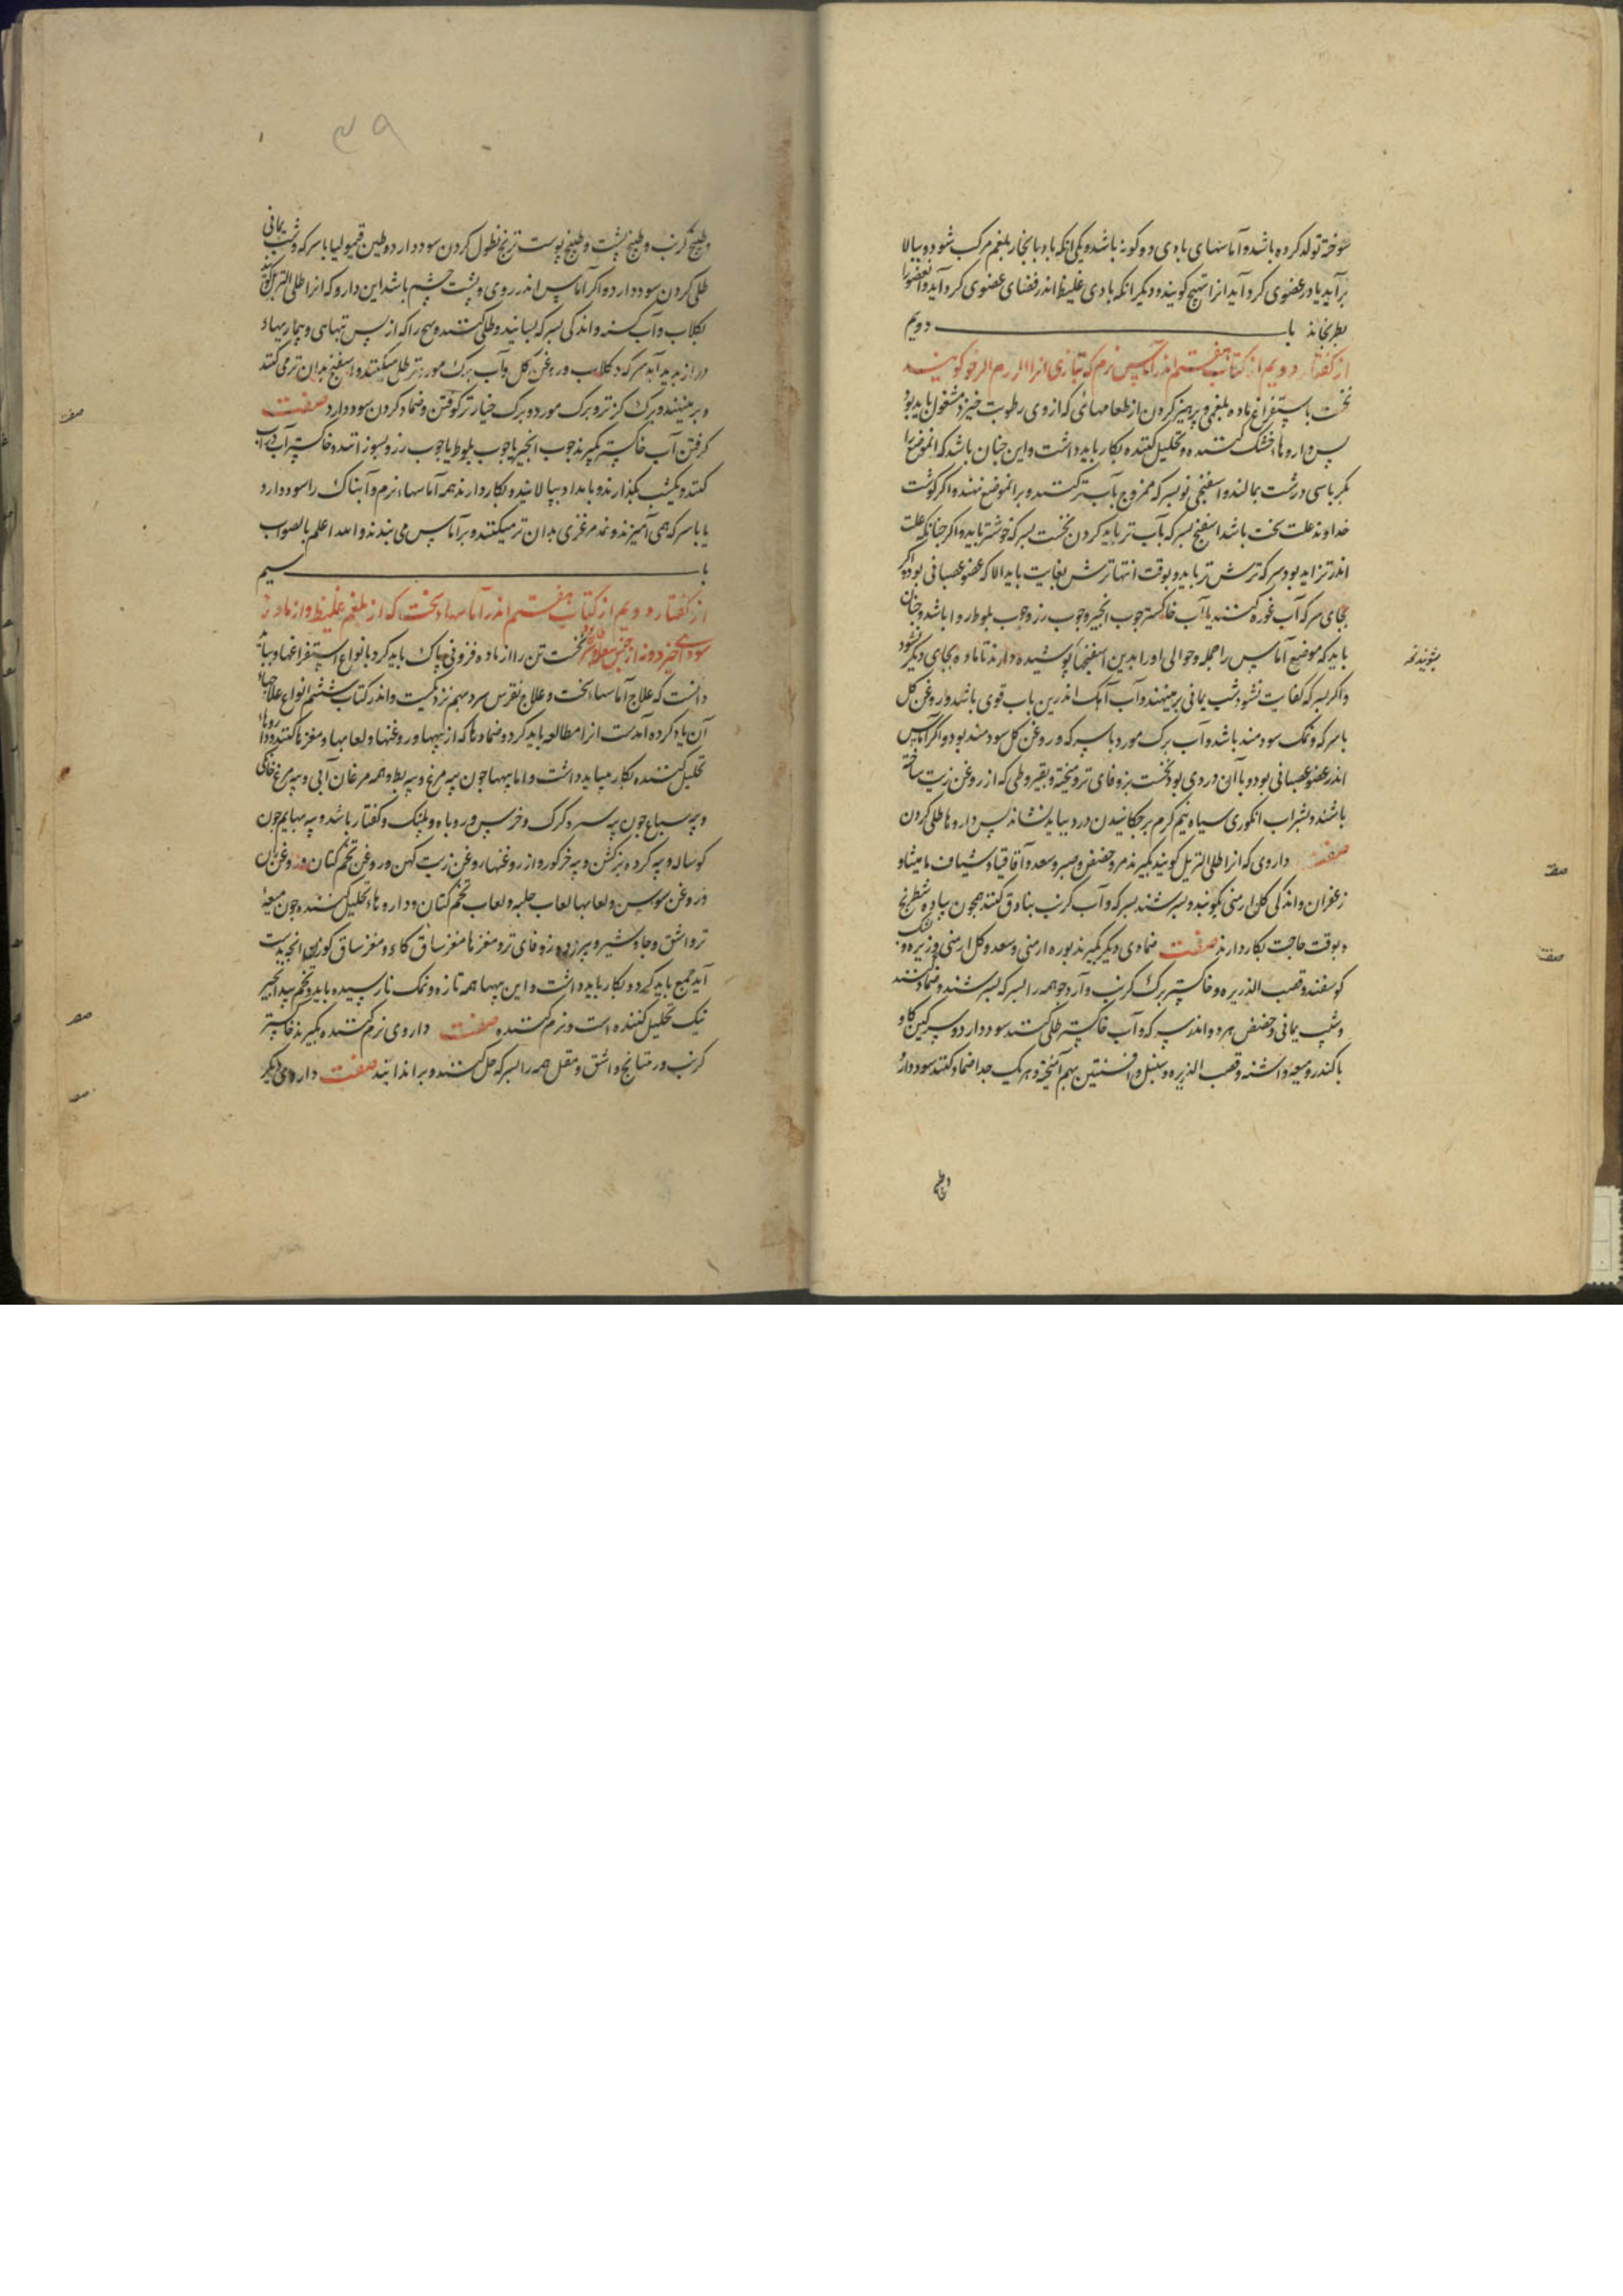 سوخته تولد کرده باشد و آماسهای بادی دو کونه باشد و یکی انکه باد با بخار بلغم مرکب شود و ببالا
برآید یا در عضوی کرد آید انرا تهیج کویند و دیکر انکه بادی غلیظ اندر فضای عضوی کرد آید و انعضو را
بطرنجاند با دویم
از کفتار دویم از کتاب هفتم اندر آماس نرم که بتازی انرا الورم الرخو کویند
نخست باستفراغ ماده بلغمی و پرهیز کردن از طعامهائی که از وی رطوبت خیزد مشغول باید بود
پس داروهاء خشک کننده و تحلیل کننده بکار باید داشت و این چنان باشد که انموضع را
بکرباسی درشت بمالند و اسفنجی نو بسرکه ممزوج بآب تر کنند و بر انموضع نهند و اکر کوشت
خداوند علت سخت باشد اسفنج بسرکه بآب تر باید کردن نخست بسرکه خوشتر باید و اکر چنانکه علت
اندر تزاید بود سرکه ترش تر باید و بوقت انتها ترش بغایت باید الا که عضو عصبانی بود و اکر
بجای سرکه آب غوره کنند یا آب خاکستر چوب انجیر و چوب رز و چوب بلوط روا باشد و چنان
باید که موضع آماس را جمله و حوالی او را بدین اسفنجها پوشیده دارند تا ماده بجای دیکر نشود
و اکر بسرکه کفایت نشود شب یمانی برنهند و آب آهک اندرین باب قوی باشد و روغن کل
با سرکه و نمک سودمند باشد و آب برک مورد با سرکه و روغن کل سودمند بود و اکر آماس
اندر عضو عصبانی بود و با آن دردی بود نخست بزوفای تر و پخته و بقیروطی که از روغن زیت ساخته
باشند و بشراب انکوری سیاه نیم کرم برچکانیدن درد بباید نشاند پس داروها طلی کردن
صفت داروی که انرا طلی التربل کویند بکیرند مر و حضض و صبر و سعد و آقاقیا و شیاف مامیثا و
زعفران و اندکی کل ارمنی بکوبند و بسرشند بسرکه و آب کرنب بنادق کنند همچون پیاده شطرنج
و بوقت حاجت بکار دارند صفت ضمادی دیکر بکیرند بوره ارمنی و سعد و کل ارمنی و زیره و پشک
کوسفند و قصب الذریره و خاکستر برک کرنب و آرد جو همه را بسرکه بسرشند و ضماد کنند
و شب یمانی و حضض هر دو اندر سرکه و آب خاکستر طلی کنند سود دارد و سرکین کاو
با کندر و میعه و اشنه و قصب الذریره و سنبل و افسنتین بهم آمیخته و هر یک جدا ضماد کنند سود دارد
وطبیخ
بشویند نخه
صفت
صفت
۳۹
وطبیخ کرنب و طبیخ شبت و طبیخ پوست ترنج نطول کردن سود دارد و طین قیمولیا با سرکه و شب یمانی
طلی کردن سود دارد و اکر آماس اندر روی و پشت چشم باشد این دارو که انرا طلی التربل کویند
بکلاب و آب کشنه و اندکی بسرکه بسایند و طلی کنند و تهیج را که از پس تبهای و بیماریهاء
دراز پدید آید سرکه و کلاب و روغن کل و آب برک مورد تر طلی میکنند و اسفنج بدان تر می کنند
و برمینهند و برک کز تر و برک مورد و برک خیار تر کوفتن و ضماد کردن سود دارد صفت
کرفتن آب خاکستر بکیرند چوب انجیر یا چوب بلوط یا چوب رز و بسوزانند و خاکستر آب
کنند و یکشب بکذارند و بامداد بپالایند و بکار دارند همه آماسهاء نرم و آبناک را سود دارد
یا با سرکه همی آمیزند و نمد مرغزی بدان تر میکنند و بر آماس می بندند والله اعلم بالصواب
با سیم
از کفتار دویم از کتاب هفتم اندر آماسهاء سخت که از بلغم غلیظ و از ماده
سودائی خیزد و نه از جنس سقیروس نخست تن را از ماده فزونی پاک باید کرد بانواع استفراغها و بباید
دانست که علاج آماسهاء سخت و علاج نقرس سرد بهم نزدیکست و اندر کتاب ششم انواع علاجهاء
آن یاد کرده آمدست انرا مطالعه باید کرد و ضمادها که از پیهها و روغنها و لعابها و مغزها کنند و داروهاء
تحلیل کننده بکار میباید داشت و اما پیهها چون پیه مرغ و پیه بط و همه مرغان آبی و پیه مرغ خانکی
و پیه سباع چون پیه شیر و کرک و خرس و روباه و پلنک و کفتار باشد و پیه بهایم چون
کوساله و پیه کرده بز کشن و پیه خرکور و از روغنها روغن زیت کهن و روغن تخم کتان و روغن بان
و روغن سوسن و لعابها لعاب حلبه و لعاب تخم کتان و داروهاء تحلیل کننده چون میعهٔ
تر و اشق و جاوشیر و بیرزد و زوفای تر و مغزها مغز ساق کاو و مغز ساق کوزن انچه بدست
آید جمع باید کرد و بکار باید داشت و این پیهها همه تازه و نمک نارسیده باید و تخم بید انجیر
نیک تحلیل کننده است و نرم کننده صفت داروی نرم کننده بکیرند خاکستر
کرنب و ریتیانج و اشق و مقل همه را بسرکه حل کنند و براندایند صفت داروی دیکر
صفت
صفت
صفت